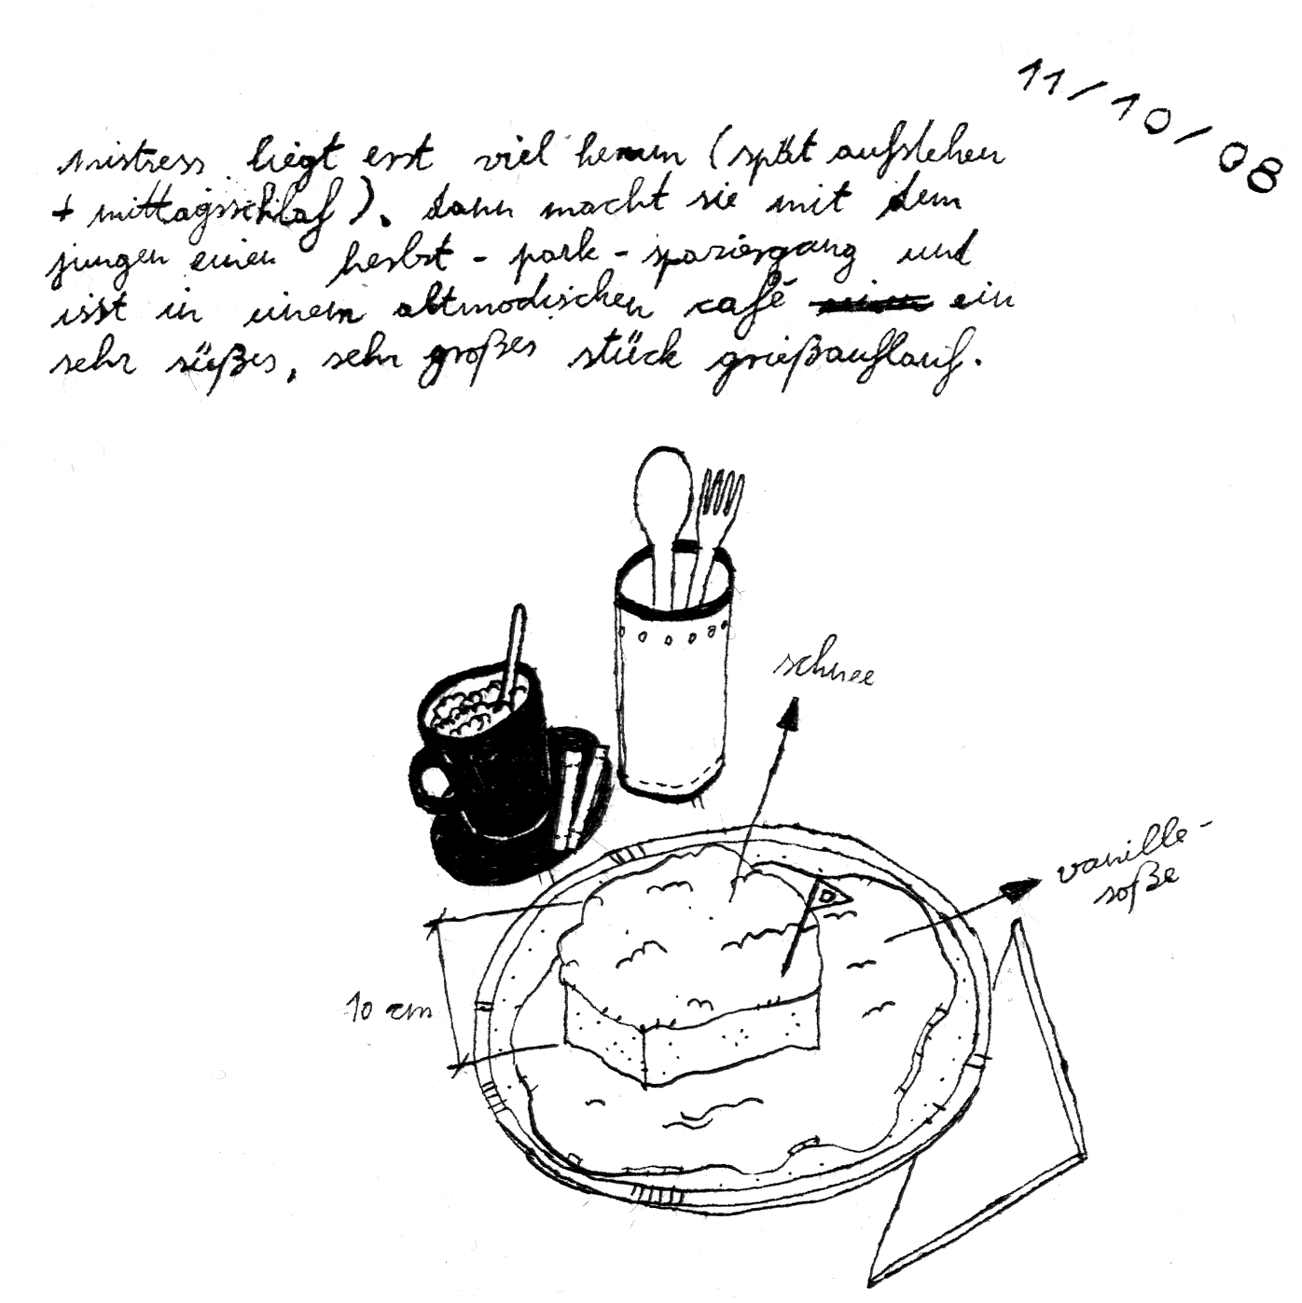 11/10/08
mistress liegt erst viel herum (spät aufstehen
+ mittagsschlaf). dann macht sie mit dem
jungen einen herbst-park-spaziergang und
isst in einem altmodischen café ein
sehr süßes, sehr großes stück grießauflauf.
schnee
vanille-
soße
10 cm